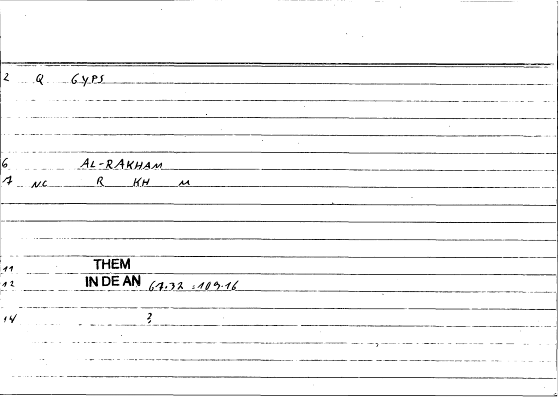 2 Q GYPS
6 AL-RAKHAM
7 NC R KH M
11 THEM
12 IN DE AN 67.32 = 109.16
14 ?